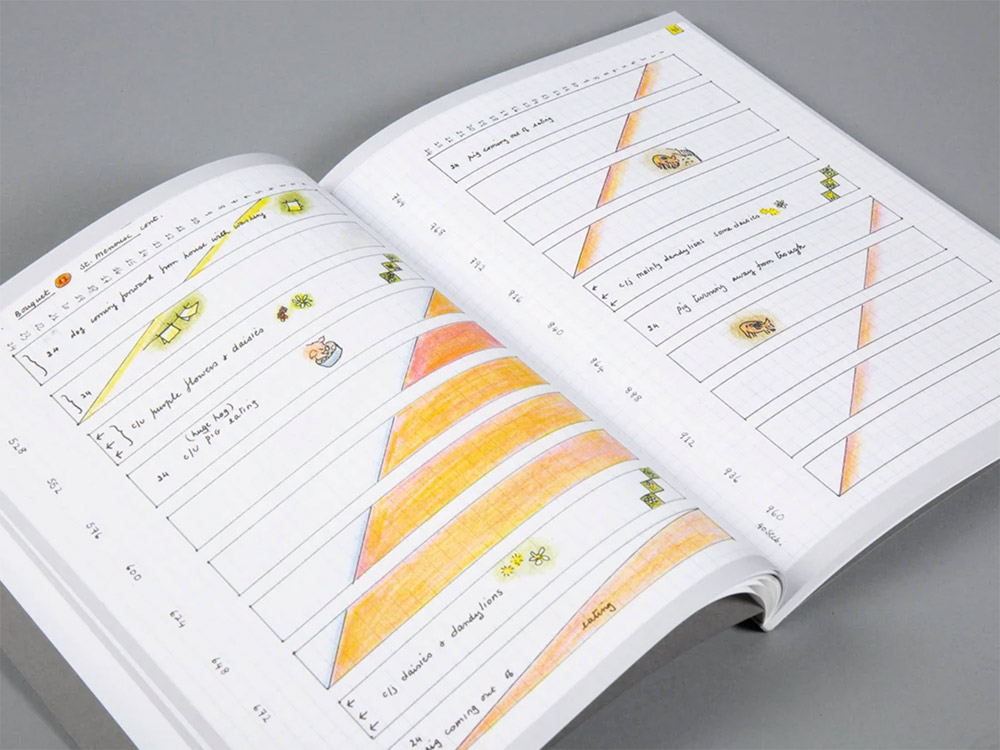 Bouquet 42 St. Menoux cont.
24 dog coming forward from house with washing
24
c/u purple flowers & daisies
24 (huge hog)
c/u pig eating
c/s daisies & dandylions
24 pig coming out of eating
528
552
576
600
624
648
672
24 pig coming out of eating
c/s mainly dandylions some daisies
24 pig turning away from trough
744
768
792
816
840
864
888
912
936
960
40 secs.